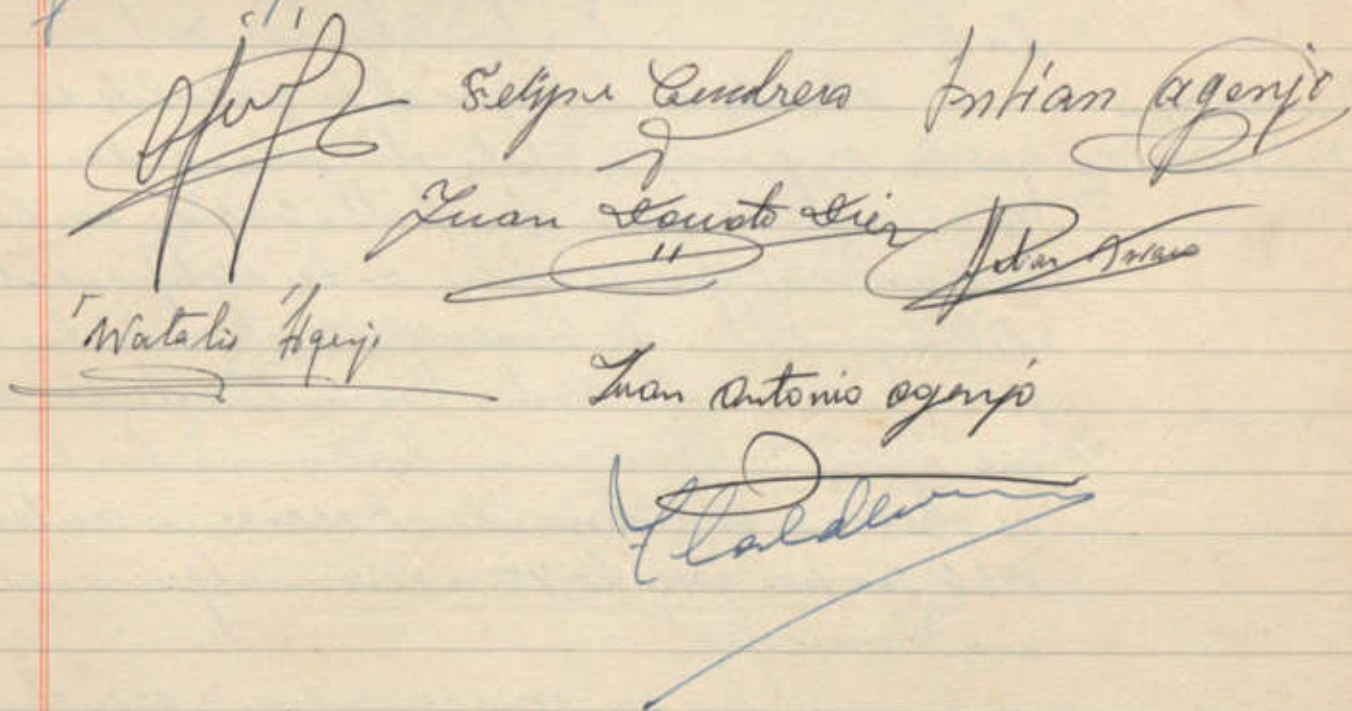 Felipe Cendrero Julian agenjo
Juan Donato Diez
Natalio Agenjo
Juan Antonio agenjo